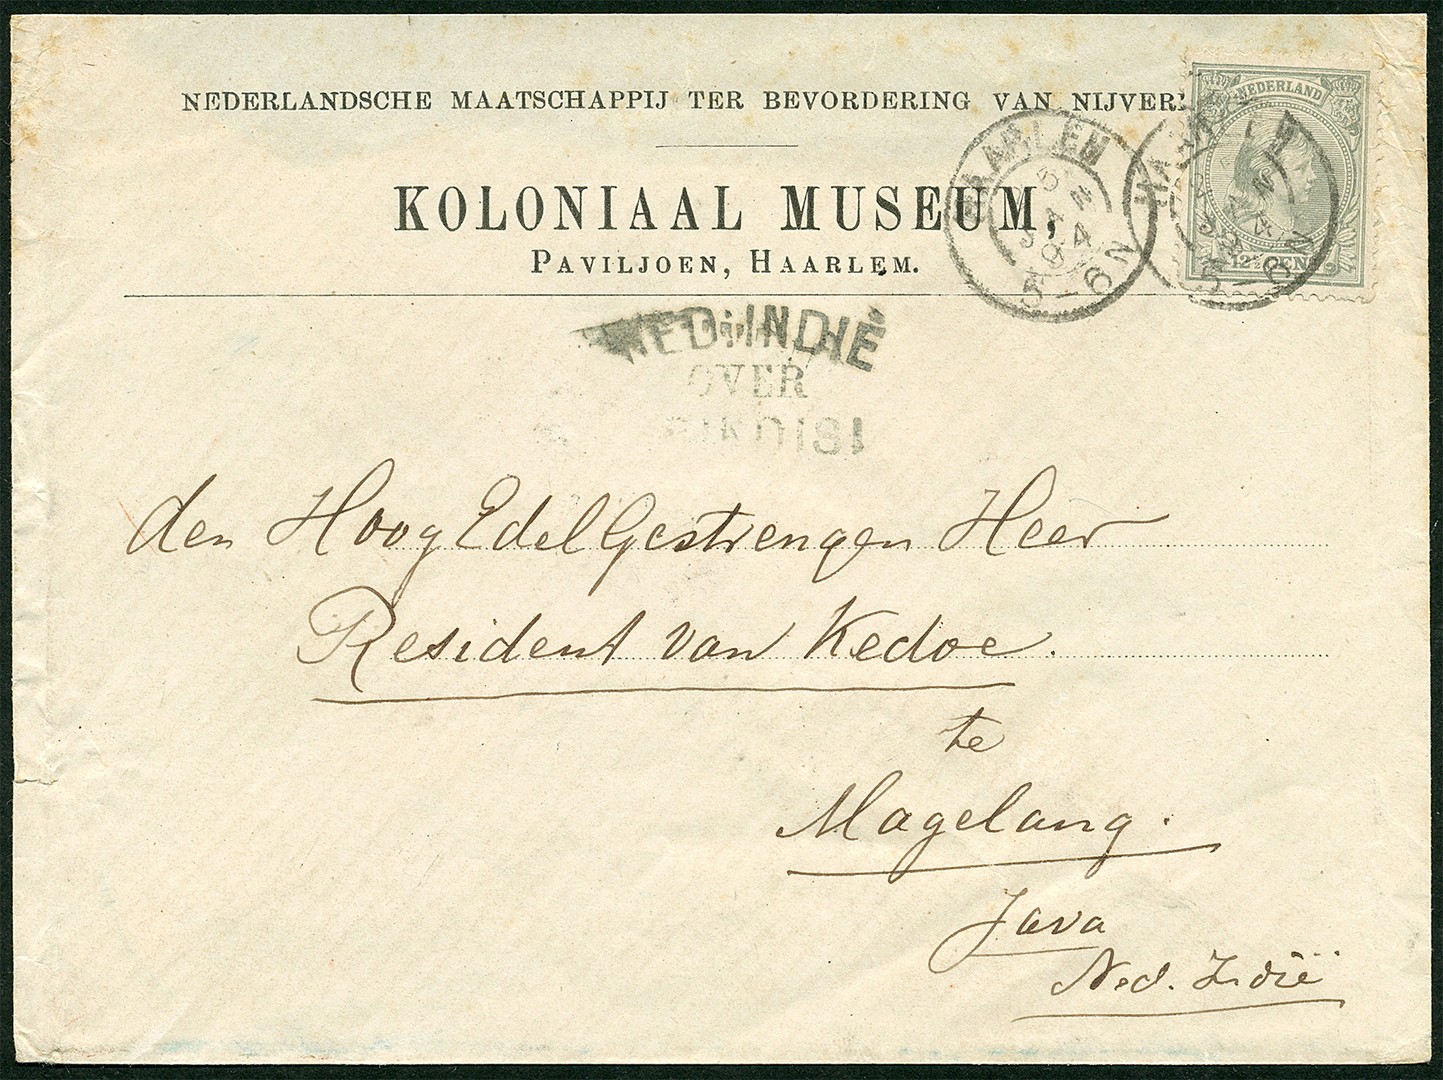 NEDERLANDSCHE MAATSCHAPPIJ TER BEVORDERING VAN NIJVER
NEDERLAND
12½ CENT
KOLONIAAL MUSEUM,
PAVILJOEN, HAARLEM.
HAARLEM
5 JAN
94
5-6N
HAARLEM
5-6N
NED: INDIË
OVER
den HoogEdelGestrengen Heer
Resident van Kedoe.
te
Magelang.
Java
Ned. Indië